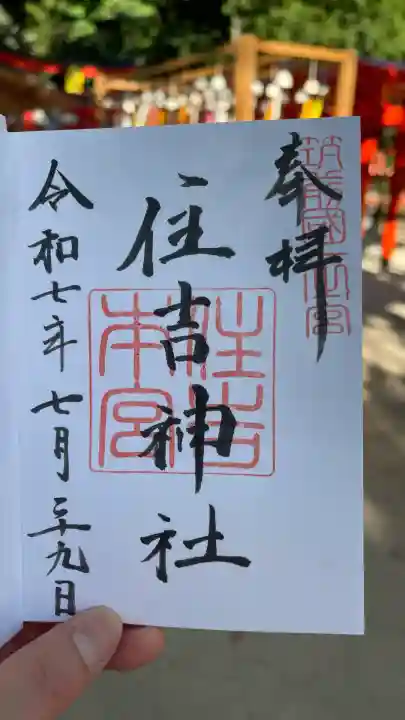 奉拝
筑前國宮
住吉神社
住吉
本宮
令和七年七月二十九日